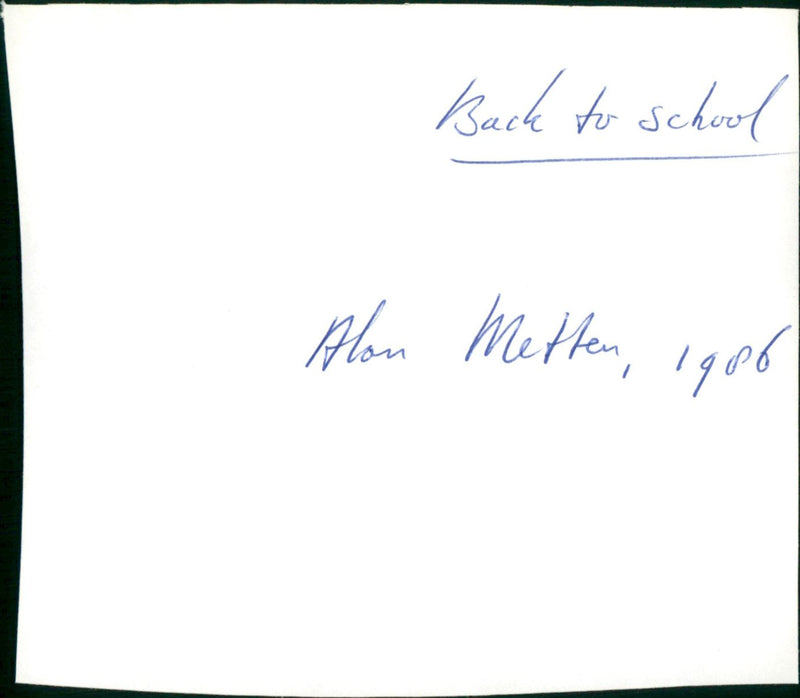 Back to school
Alan Metten, 1986